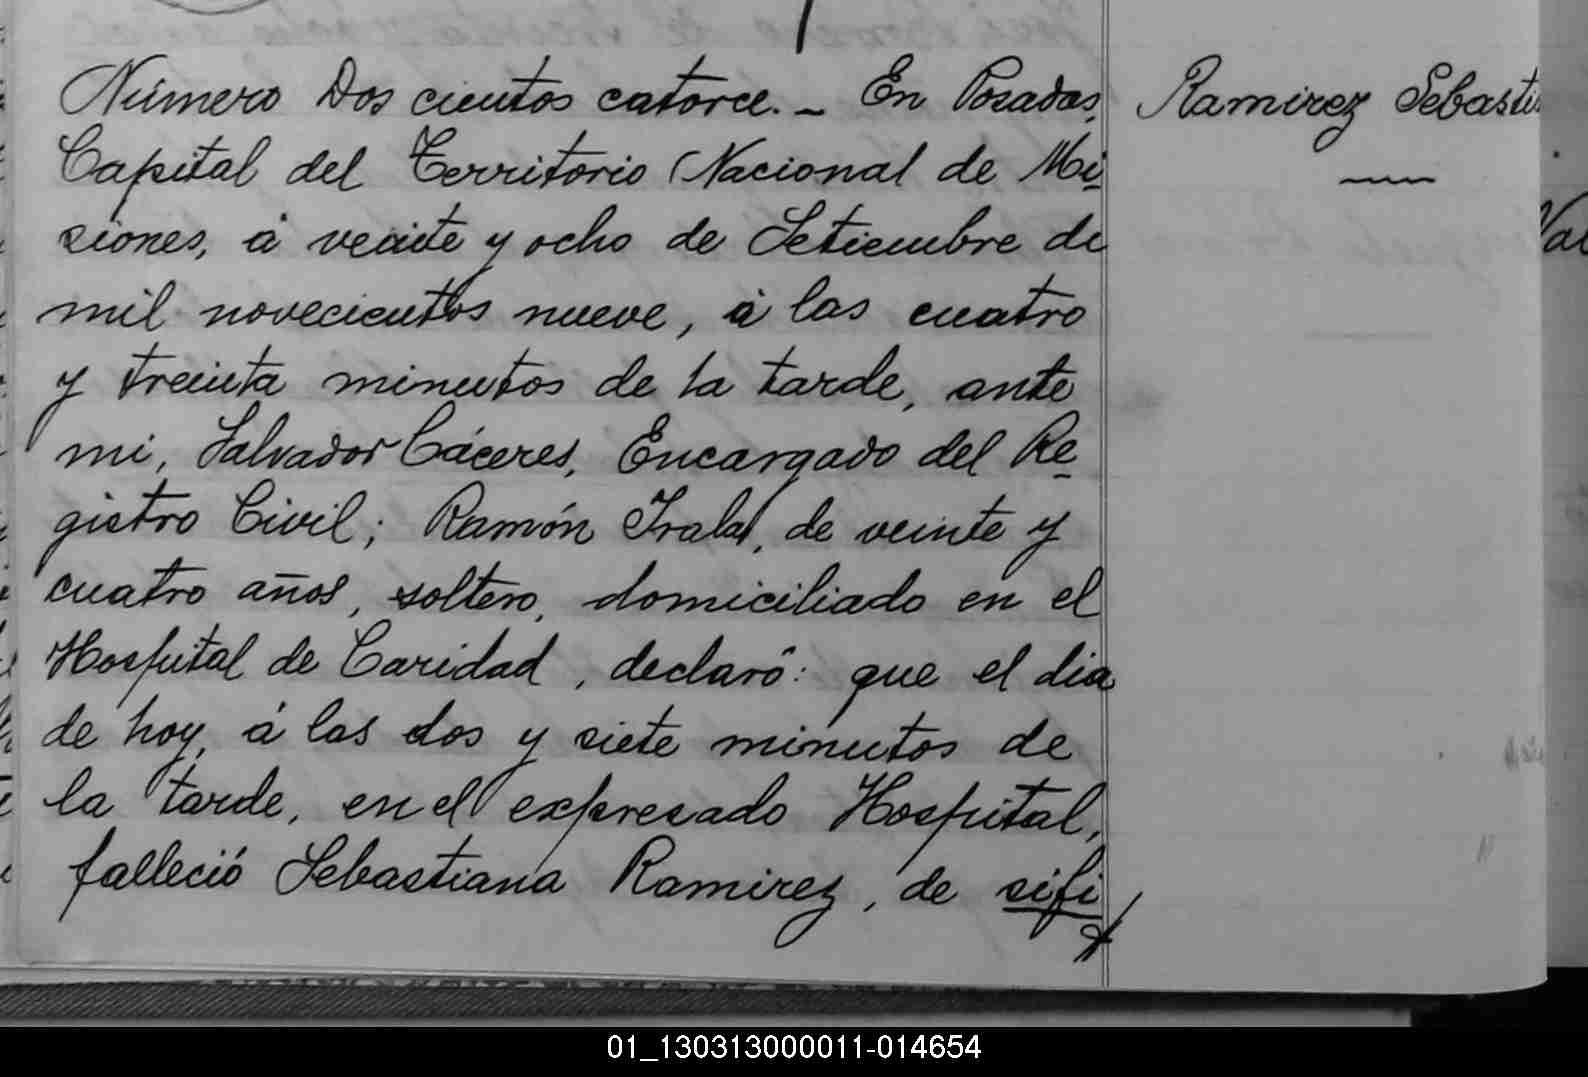 Número Dos cientos catorce. - En Posadas,
Capital del Territorio Nacional de Mi-
siones, á veinte y ocho de Setiembre de
mil novecientos nueve, á las cuatro
y treinta minutos de la tarde, ante
mi, Salvador Cáceres, Encargado del Re-
gistro Civil; Ramón Irala, de veinte y
cuatro años, soltero, domiciliado en el
Hospital de Caridad, declaró: que el dia
de hoy, á las dos y siete minutos de
la tarde, en el expresado Hospital,
falleció Sebastiana Ramirez, de sifi
Ramirez Sebasti
Val
01_130313000011-014654